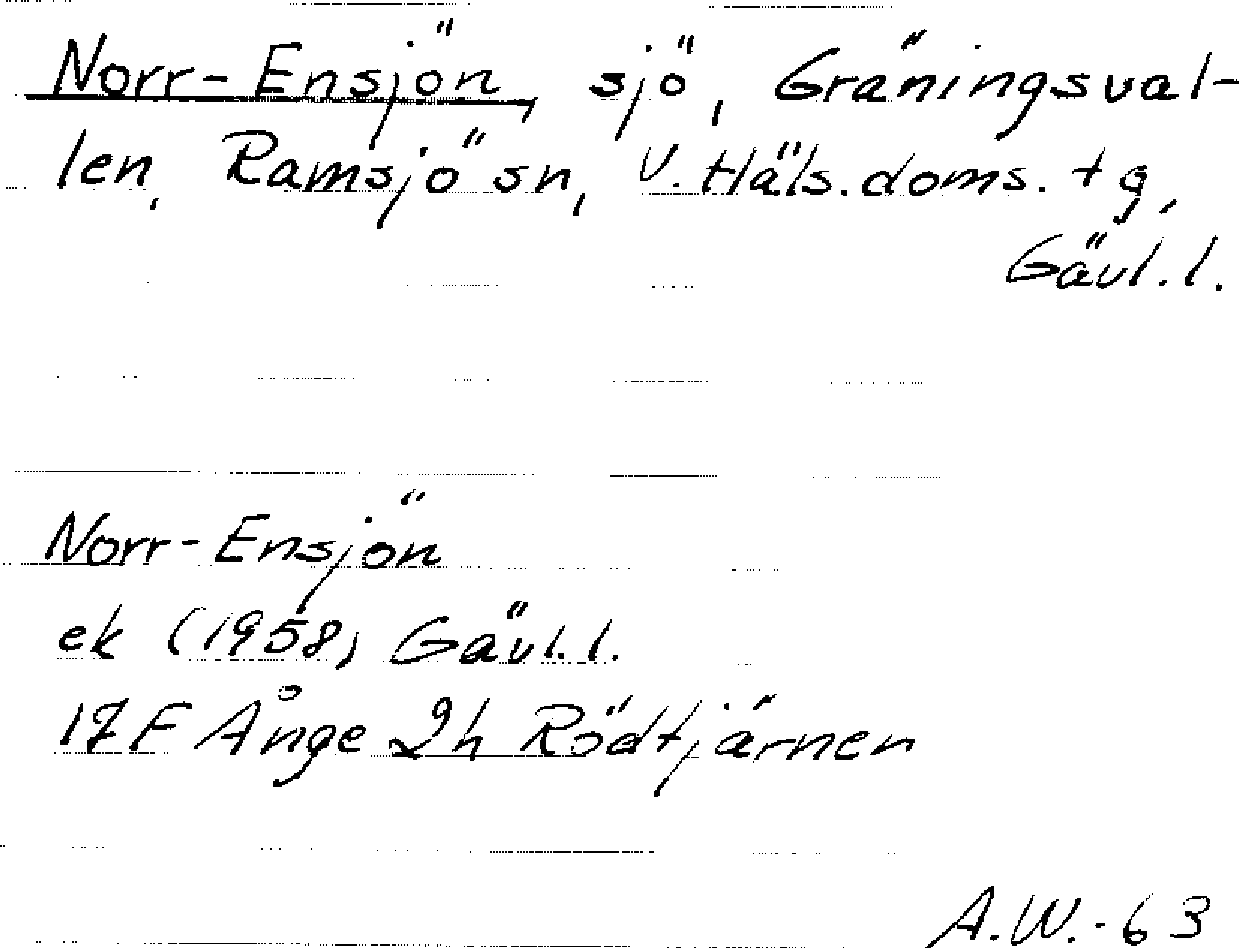 Norr-Ensjön, sjö, Gräningsval-
len, Ramsjö sn, V. Häls. doms. tg,
Gävl. l.
Norr-Ensjön
ek (1958) Gävl. l.
17F Ånge 2h Rödtjärnen
A.W.-63